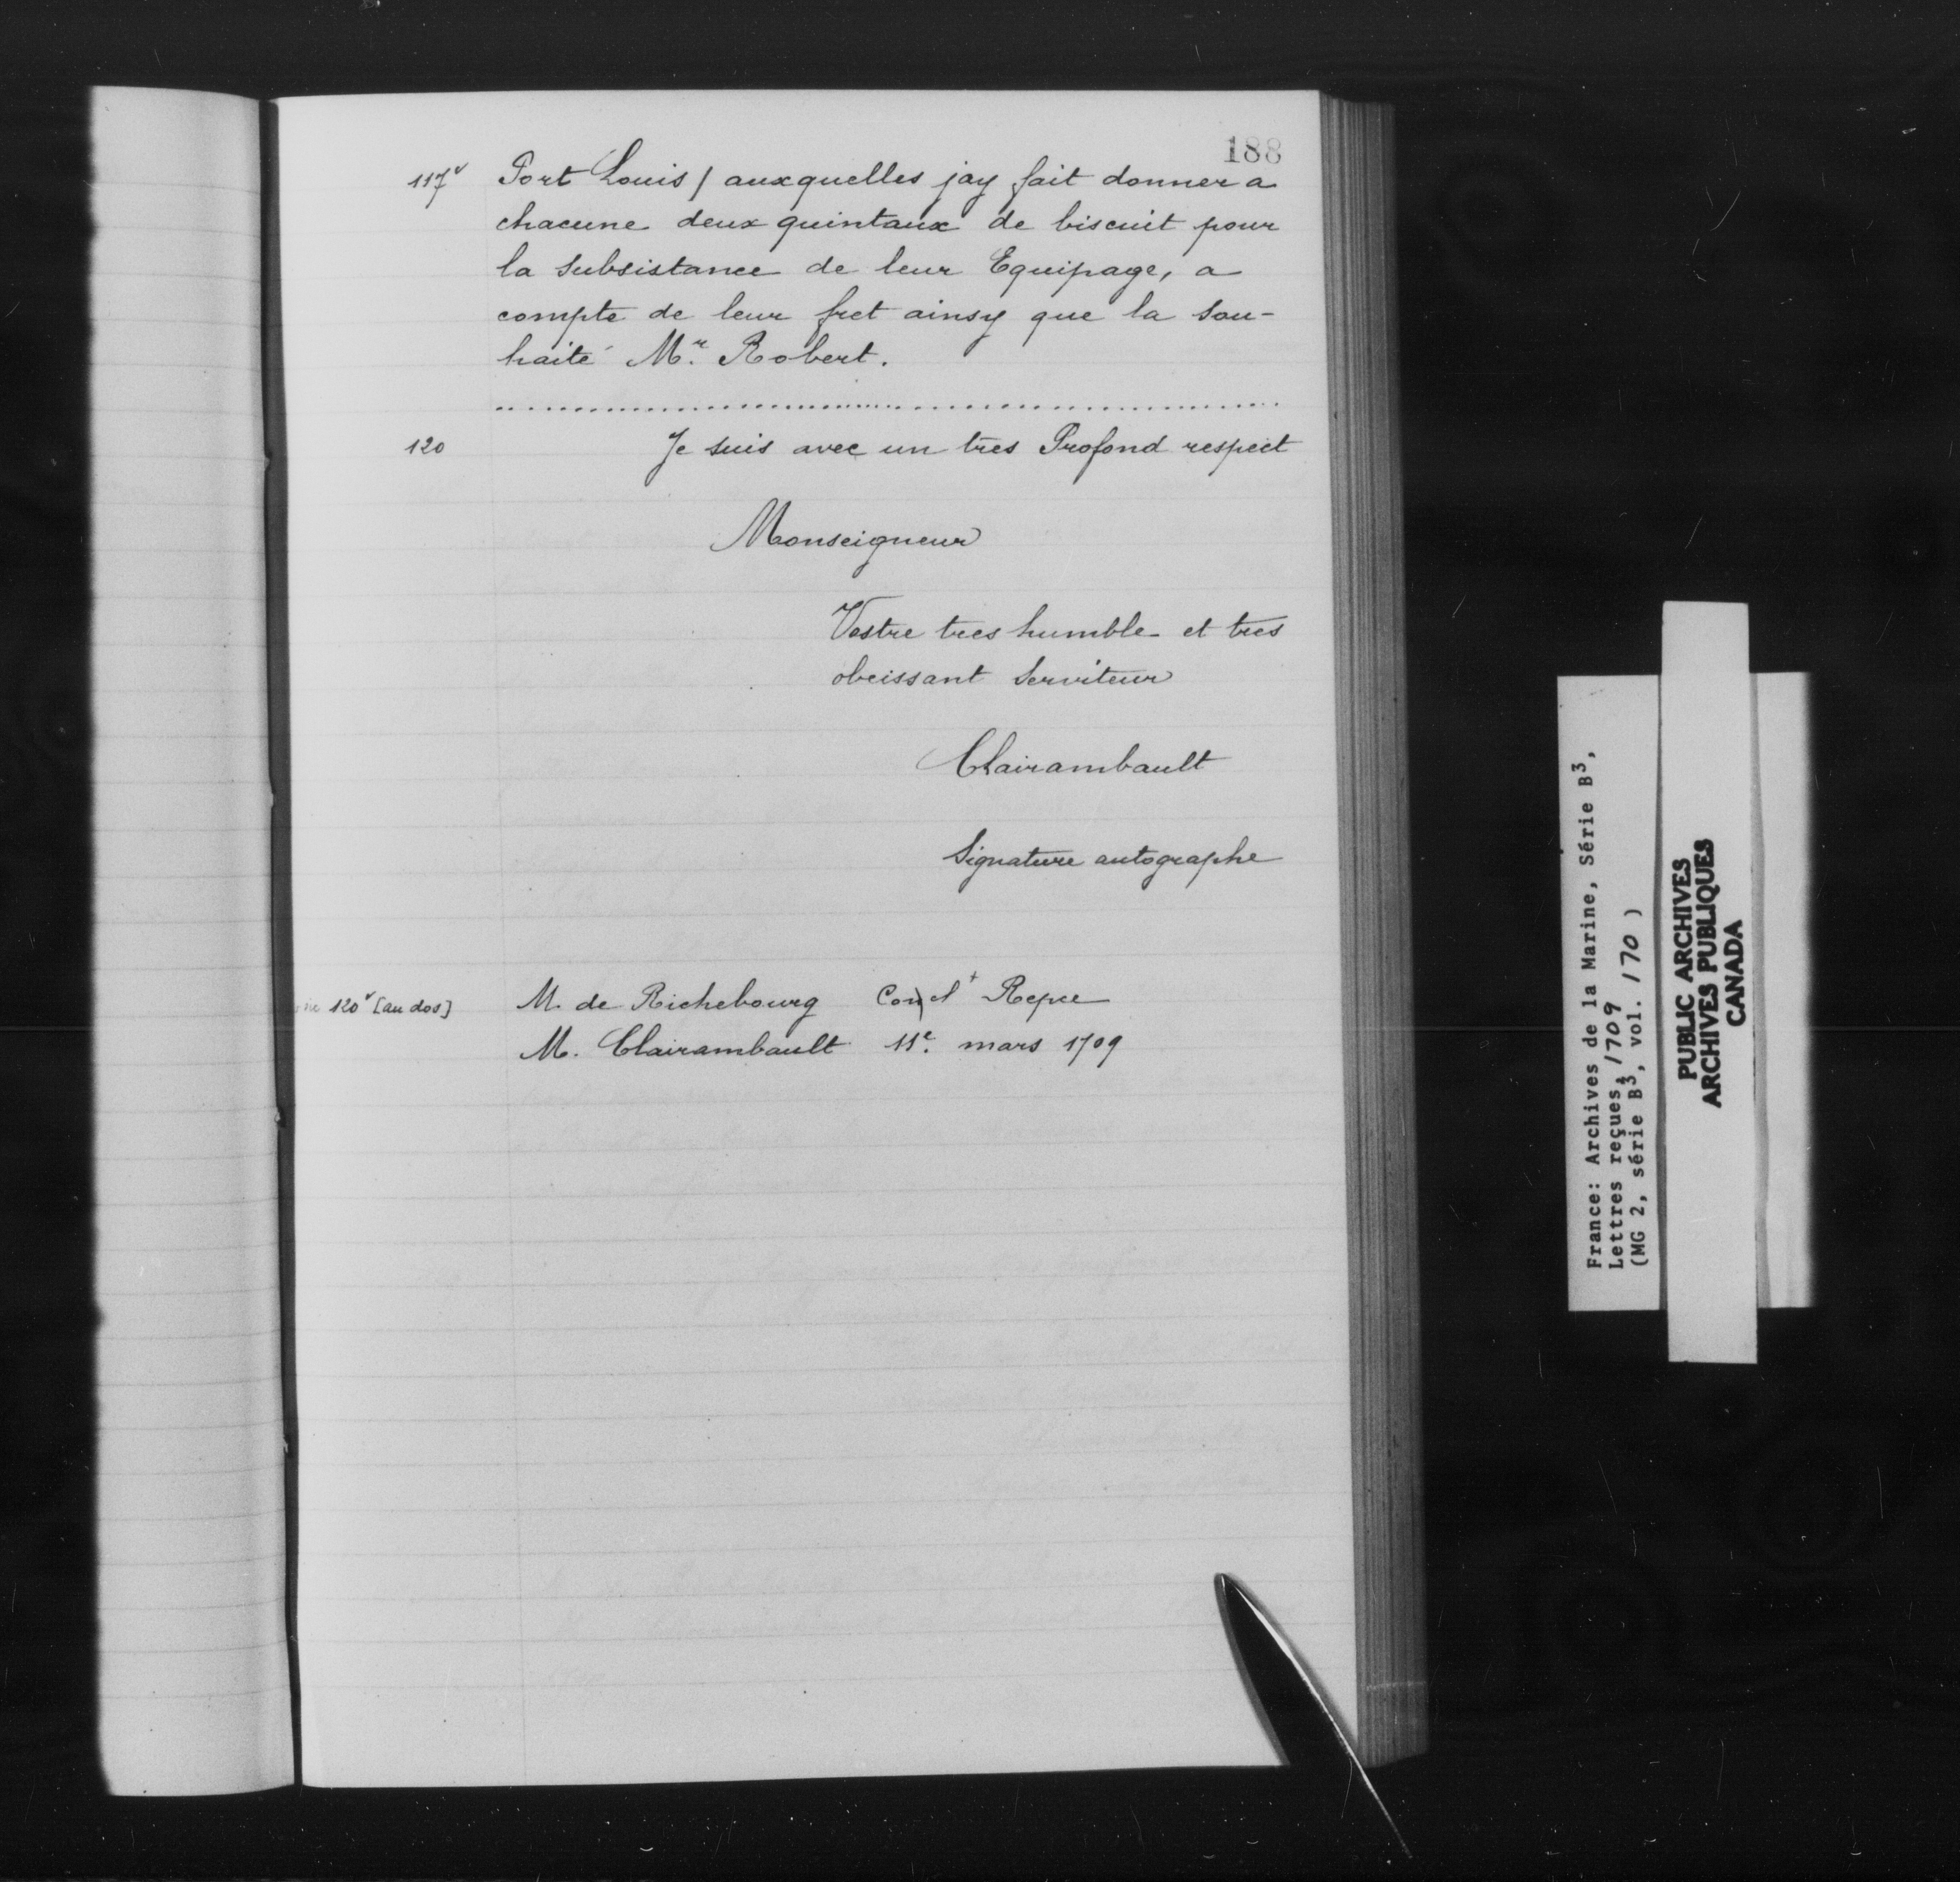 188
117v Port Louis / auxquelles jay fait donner a
chacune deux quintaux de biscuit pour
la subsistance de leur Equipage, a
compte de leur fret ainsy que la sou-
haité Mr. Robert.
120 Je suis avec un tres Profond respect
Monseigneur
Vostre tres humble et tres
obeissant Serviteur
Clairambault
Signature autographe
120v [au dos] M. de Richebourg Repce
M. Clairambault 11e. mars 1709
France: Archives de la Marine, Série B3,
Lettres reçues, 1709
(MG 2, série B3, vol. 170 )
PUBLIC ARCHIVES
ARCHIVES PUBLIQUES
CANADA